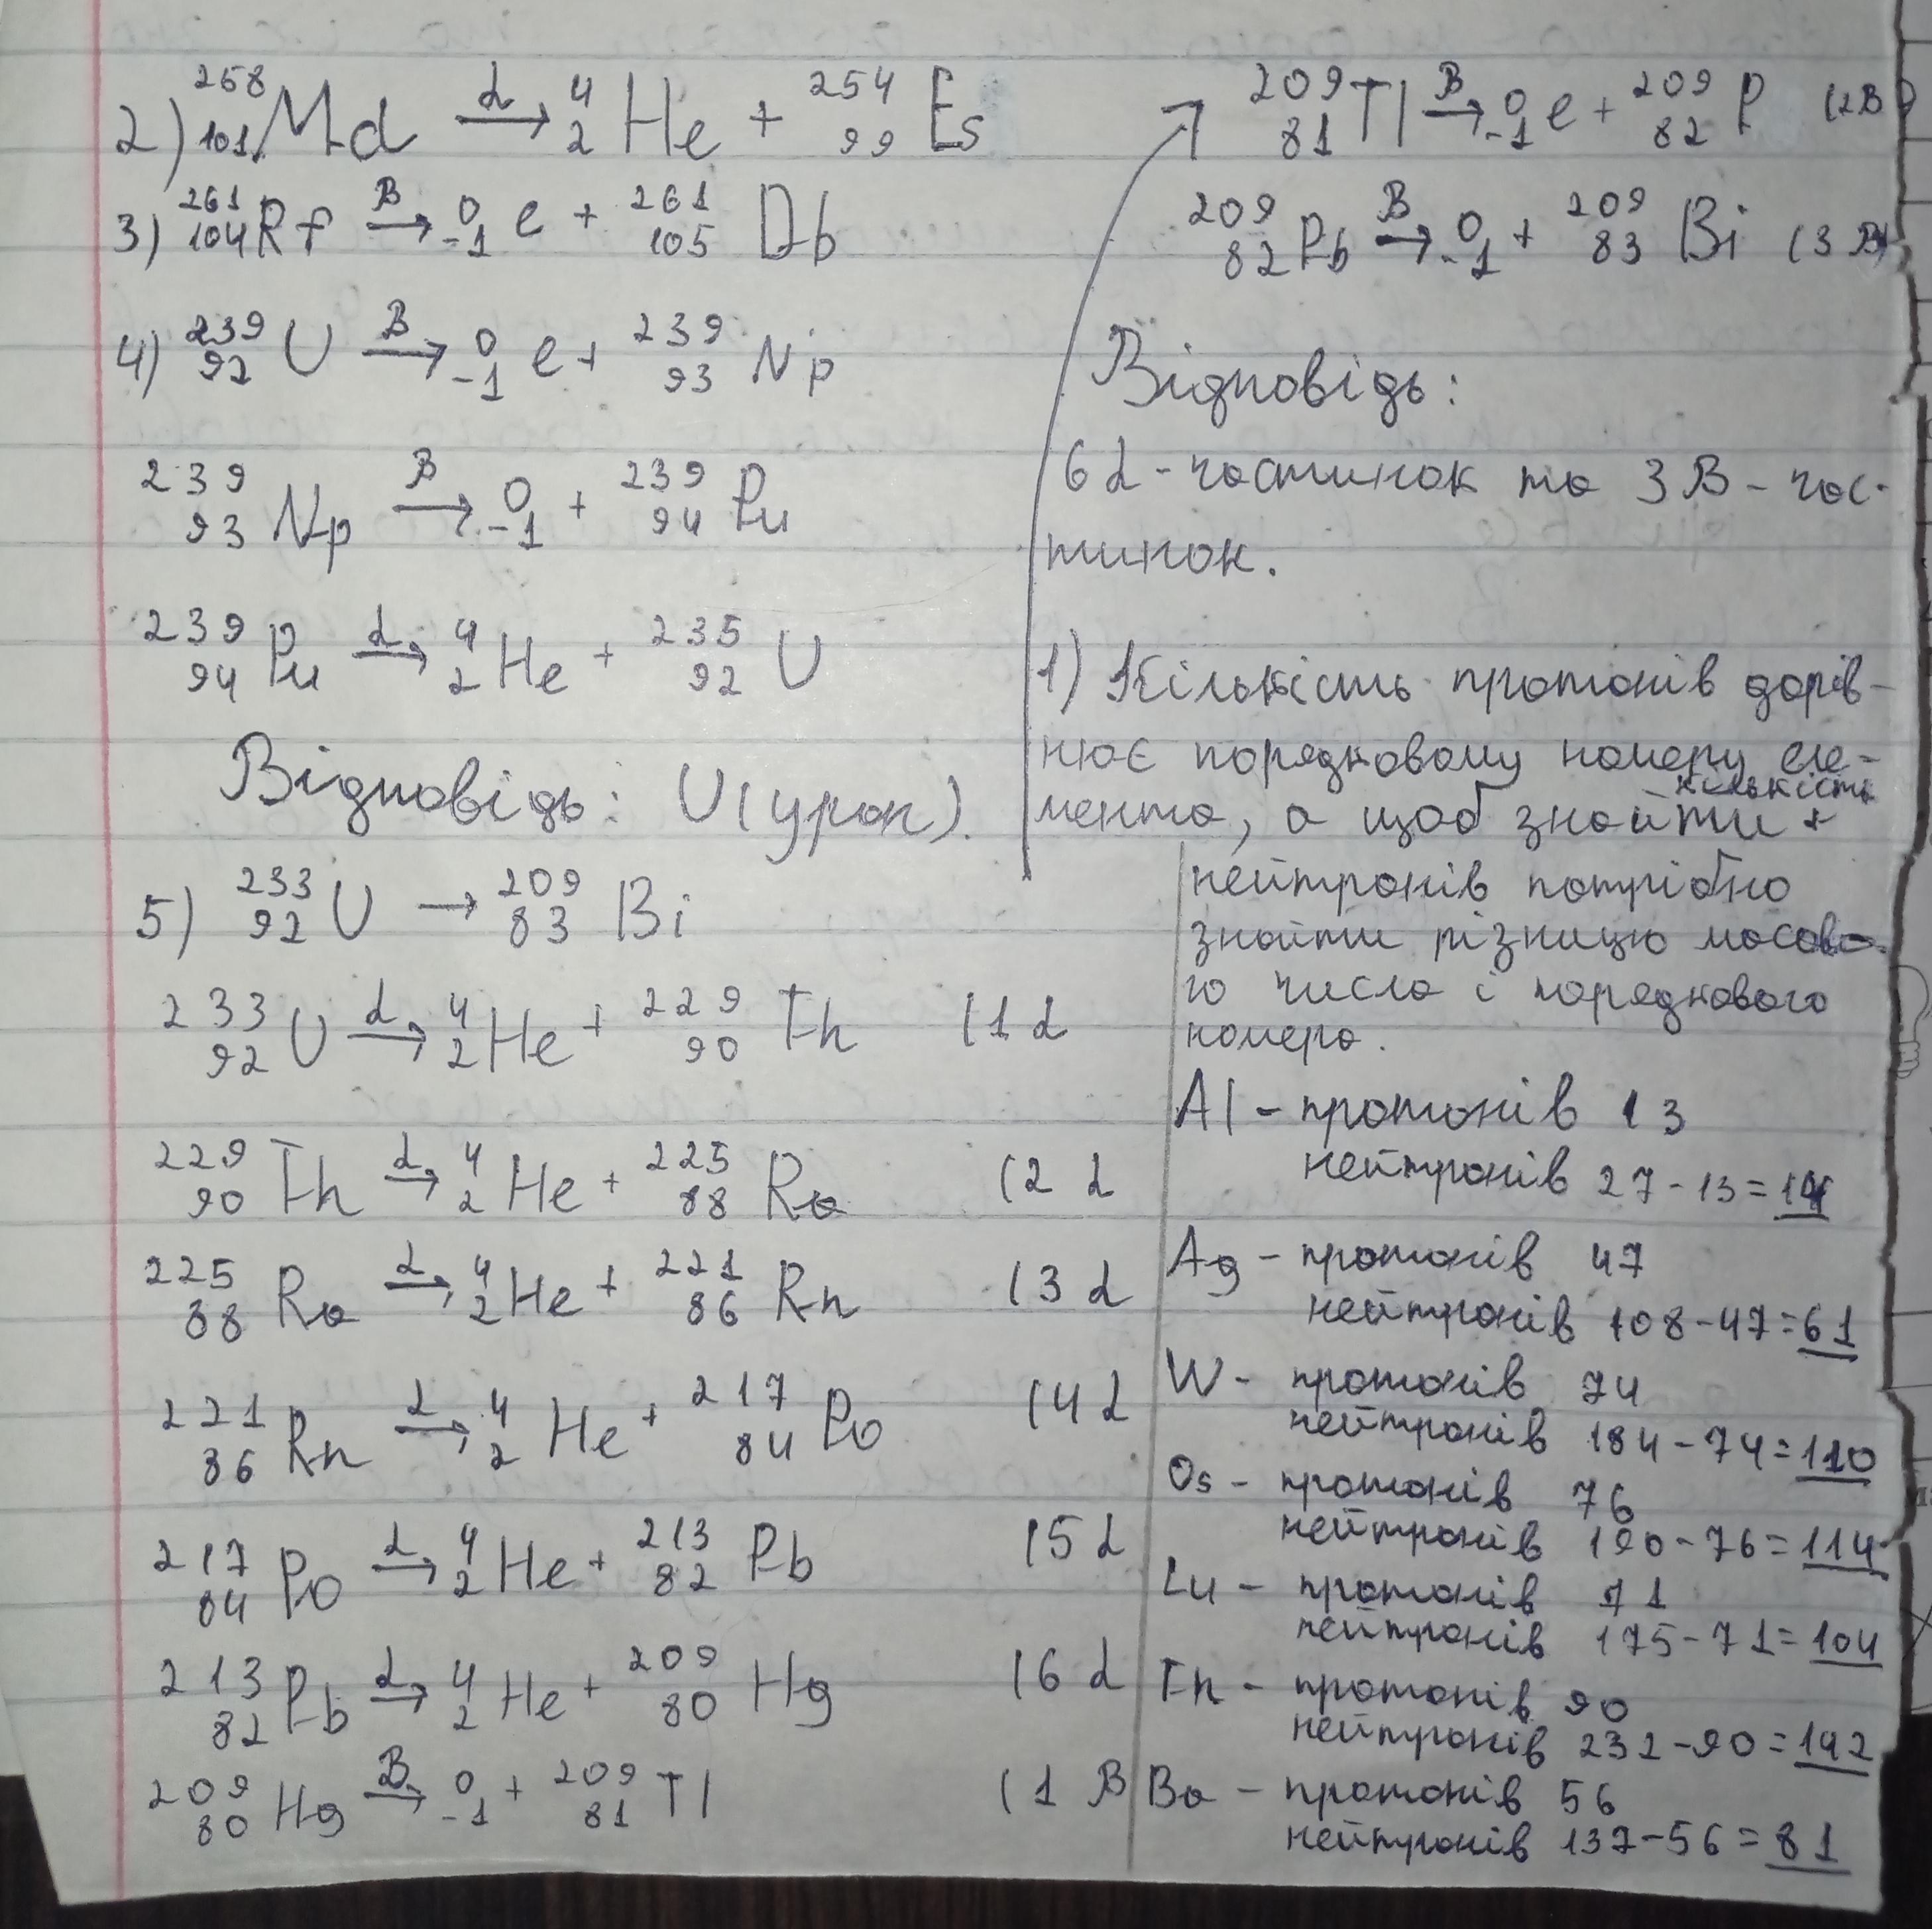 2) ²⁵⁸₁₀₁Md —α→ ⁴₂He + ²⁵⁴₉₉Es
3) ²⁶¹₁₀₄Rf —β→ ⁰₋₁e + ²⁶¹₁₀₅Db
4) ²³⁹₉₂U —β→ ⁰₋₁e + ²³⁹₉₃Np
²³⁹₉₃Np —β→ ⁰₋₁ + ²³⁹₉₄Pu
²³⁹₉₄Pu —α→ ⁴₂He + ²³⁵₉₂U
Відповідь: U (уран).
5) ²³³₉₂U → ²⁰⁹₈₃Bi
²³³₉₂U —α→ ⁴₂He + ²²⁹₉₀Th (1 α
²²⁹₉₀Th —α→ ⁴₂He + ²²⁵₈₈Ra (2 α
²²⁵₈₈Ra —α→ ⁴₂He + ²²¹₈₆Rn (3 α
²²¹₈₆Rn —α→ ⁴₂He + ²¹⁷₈₄Po (4 α
²¹⁷₈₄Po —α→ ⁴₂He + ²¹³₈₂Pb (5 α
²¹³₈₂Pb —α→ ⁴₂He + ²⁰⁹₈₀Hg (6 α
²⁰⁹₈₀Hg —β→ ⁰₋₁ + ²⁰⁹₈₁Tl (1 β
²⁰⁹₈₁Tl —β→ ⁰₋₁e + ²⁰⁹₈₂P (2β)
²⁰⁹₈₂Pb —β→ ⁰₋₁ + ²⁰⁹₈₃Bi (3 β)
Відповідь:
6 α - частинок та 3 β - час-
тинок.
1) Кількість протонів дорів-
нює порядковому номеру еле-
мента, а щоб знайти кількість
нейтронів потрібно
знайти різницю масово-
го числа і порядкового
номера.
Al - протонів 13
нейтронів 27-13=14
Ag - протонів 47
нейтронів 108-47=61
W - протонів 74
нейтронів 184-74=110
Os - протонів 76
нейтронів 190-76=114
Lu - протонів 71
нейтронів 175-71=104
Th - протонів 90
нейтронів 232-90=142
Ba - протонів 56
нейтронів 137-56=81